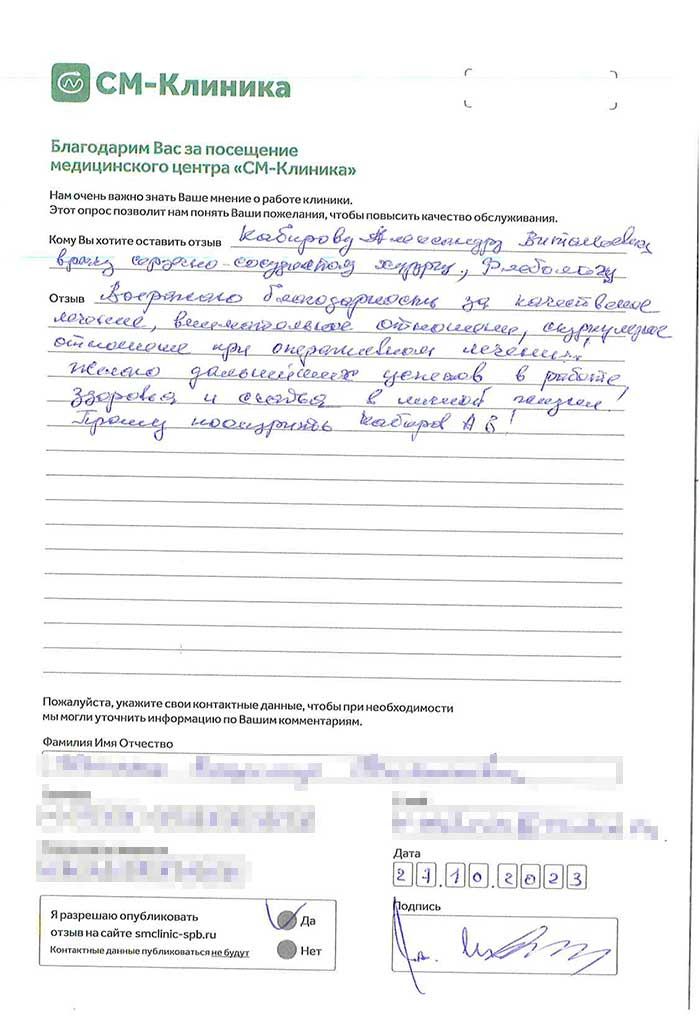 СМ-Клиника
Благодарим Вас за посещение
медицинского центра «СМ-Клиника»
Нам очень важно знать Ваше мнение о работе клиники.
Этот опрос позволит нам понять Ваши пожелания, чтобы повысить качество обслуживания.
Кому Вы хотите оставить отзыв Кабирову Александру Витальевичу
врачу сердечно-сосудистому хирургу, Флебологу
Отзыв Выражаю благодарность за качественное
лечение, внимательное отношение,
отношение при оперативном лечении!
Желаю дальнейших успехов в работе,
здоровья и счастья в личной жизни!
Прошу поощрить Кабирова А В!
Пожалуйста, укажите свои контактные данные, чтобы при необходимости
мы могли уточнить информацию по Вашим комментариям.
Фамилия Имя Отчество
Дата
21.10.2023
Я разрешаю опубликовать
отзыв на сайте smclinic-spb.ru
Контактные данные публиковаться не будут
Да
Нет
Подпись